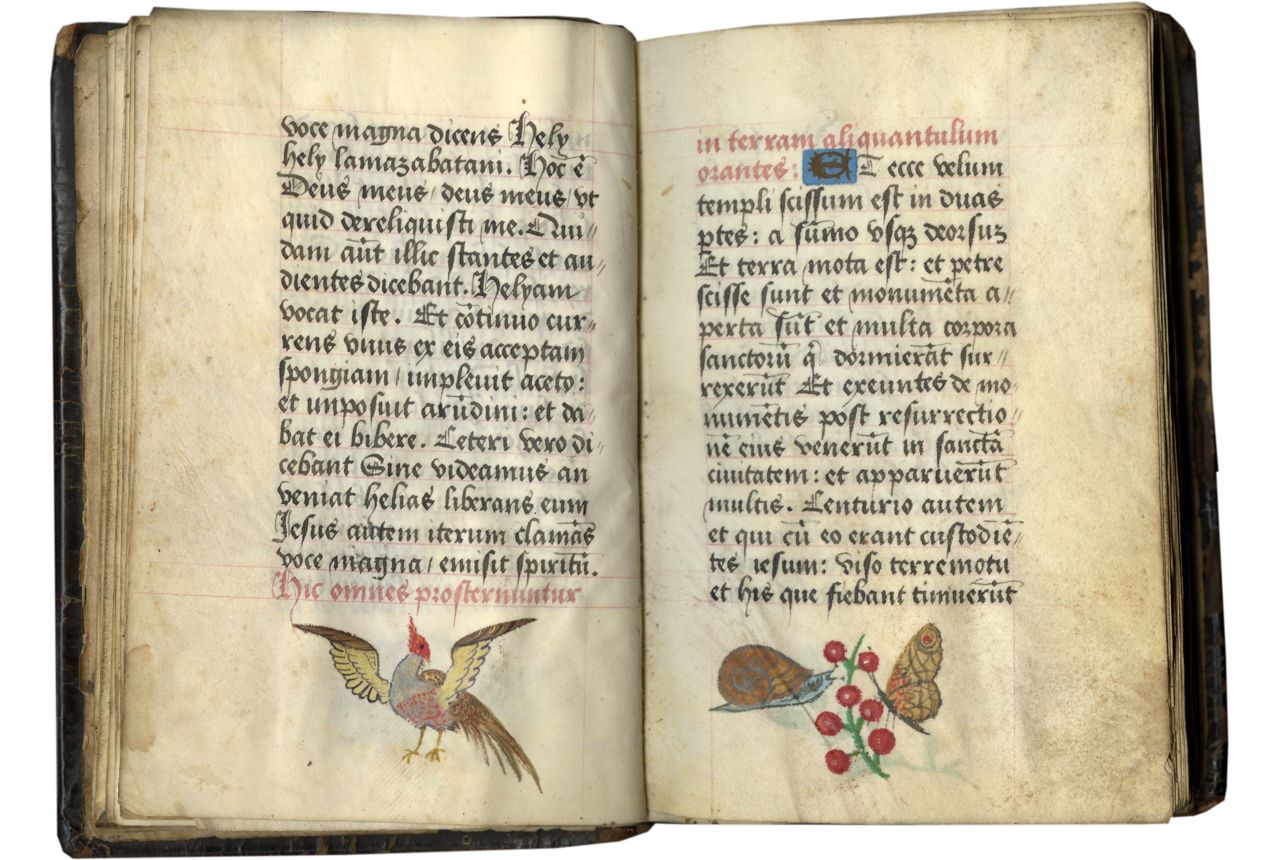 voce magna dicens Hely
hely lamazabatani. Hoc̄ ē
Deus meus / deus meus / vt
quid dereliquisti me. Qui//
dam aūt illic stantes et au//
dientes dicebant. Helyam
vocat iste. Et cōtinuo cur//
rens vnus ex eis acceptam
spongiam / impleuit aceto:
et inposuit arūdini: et da/
bat ei bibere. Ceteri vero di/
cebant Sine videamus an
veniat helias liberans eum
Jesus autem iterum clamās
voce magna / emisit spiritū.
Hic omnes prosternuntur
in terram aliquantulum
orantes: ET ecce velum
templi scissum est in duas
ꝑtes: a sūmo vsqꝫ deorsuꝫ
Et terra mota est: et petre
scisse sunt et monumēta a//
perta sūt et multa corpora
sanctorū q̄ dormierāt sur//
rexerūt Et exeuntes de mo/
numētis post resurrectio/
nē eius venerūt in sanctā
ciuitatem: et apparuerūt
multis. Centurio autem
et qui cū eo erant custodiē/
tes iesum: viso terremotu
et his que fiebant timuerūt